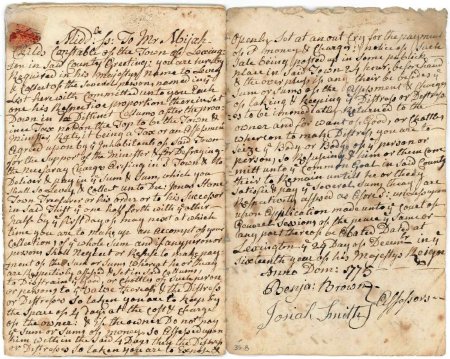 Midd.x Ss: To Mr Abijah
Childs Constable of the Town of Lexing-
ton in Said County Greeting: you are hereby
Required in his Majestys name to Levy
& Collect of the several persons named in ye
List herewith Committed unto you Each
one his Respective proportion therein Set
Down in Distinct Collums after the Prov-
ince Tax not in the Top to be the Town &
Minister Rate it being a Tax or an Assessment
Agreed upon by ye Inhabitants of said Town
for the Support of the Minister & Defraying
the Necessary Charges Arising in ye Town & the
Deliver & pay in ye Sum & Sums which you
shall so Levy & Collect unto Dn: Jonas Stone
Town Treasurer or his order or to his Successor
in Said Trust: one half forth with & other
half by ye first day of may next at which
time you are to make up an accompt of your
Collections of ye whole Sum and if any person or
persons shall neglect or Refuse to make pay-
ment of the Sum or Sums whereat he or they
are Respectively assessed & Set in sd Collums
to Distrain ye goods or Chattels of such person
or persons to ye value thereof & the Distress
or Distresses so taken you are to Keep by
the Space of 4 Days at the cost & charge
of the owner: & if the owner Do not pay
ye Sum or Sums of money so Assessed upon
him within the said 4 Days then the Distress
or Distresses so taken you are to Expose &
Openly Set at an out Cry for the payment
of sd money & Charges: notice of Such
Sale being posted up in Some publick
place in said Town 24 hours before hand
& the overplus if any there be besides ye
Sum or Sums of the Assessment & Charges
of taking & Keeping ye Distress or Distresses
to be immediately Restored to the
owner and for want of goods or Chattels
whereon to make Distress you are to
Seize ye Body or Bodys of ye person or
persons so Refusing & him or them com-
mitt unto ye common Goal in said County
there to Remain untill he or they
Satisfie & pay ye Several Sums they are
Respectively assessed as aforesd unless upon
upon Application made unto ye court of
General Sessions of the peace ye Same or
any part thereof be Abated Dated at
Lexington ye 29 Day of Decemr in ye
Sixteenth year of his Majestys Reign
Anno Dom: 1775
Benja: Brown
Josiah Smith Assessors